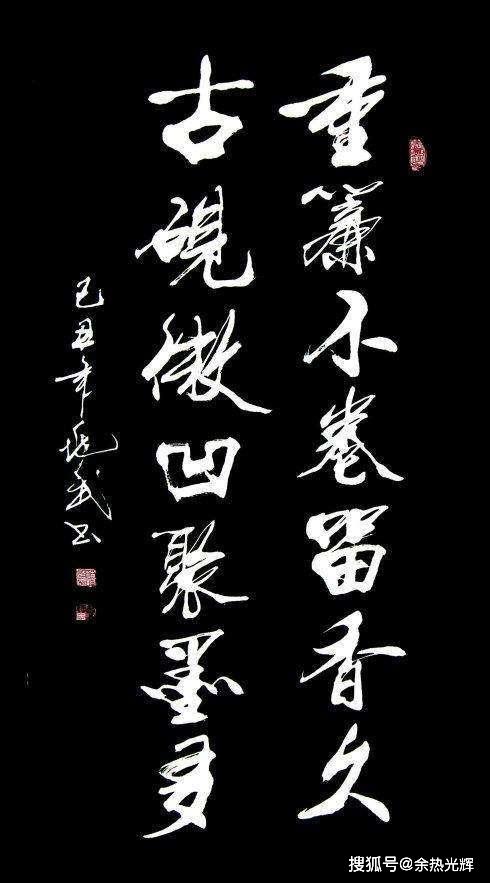 重簾不卷留香久
古硯微凹聚墨多
己丑年武书
搜狐号@余热光辉